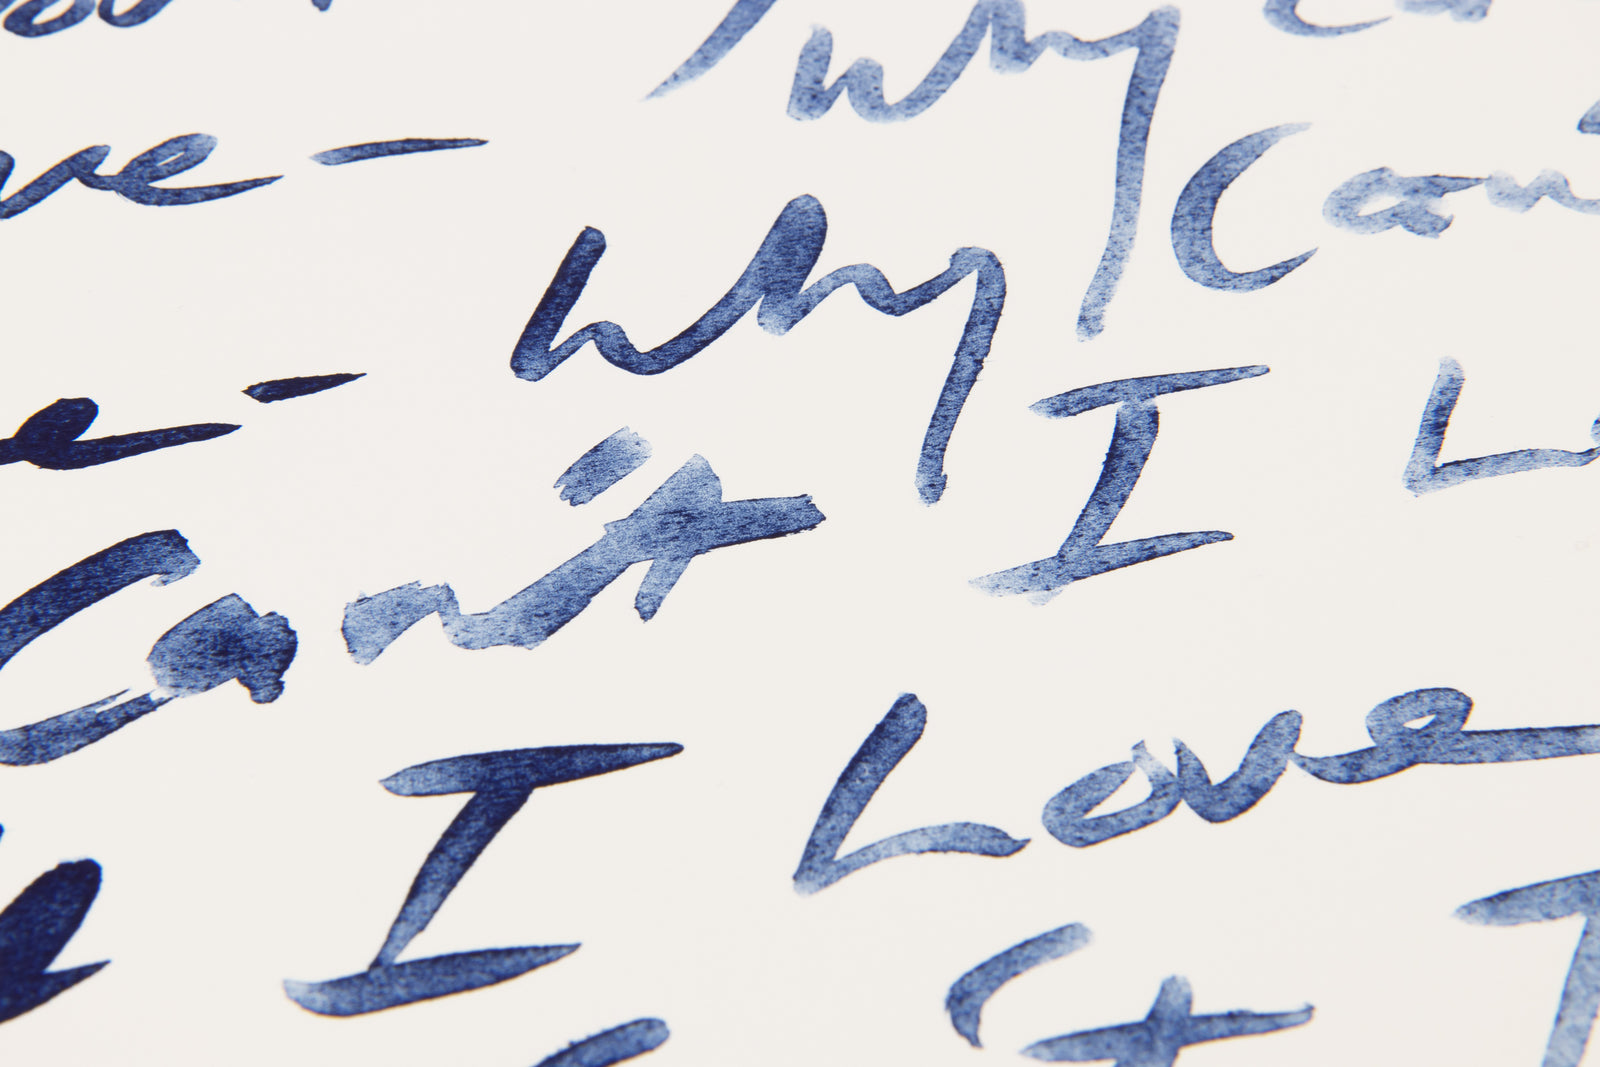 ve – Why Ca
e – Why Can
Can't I L
I Love